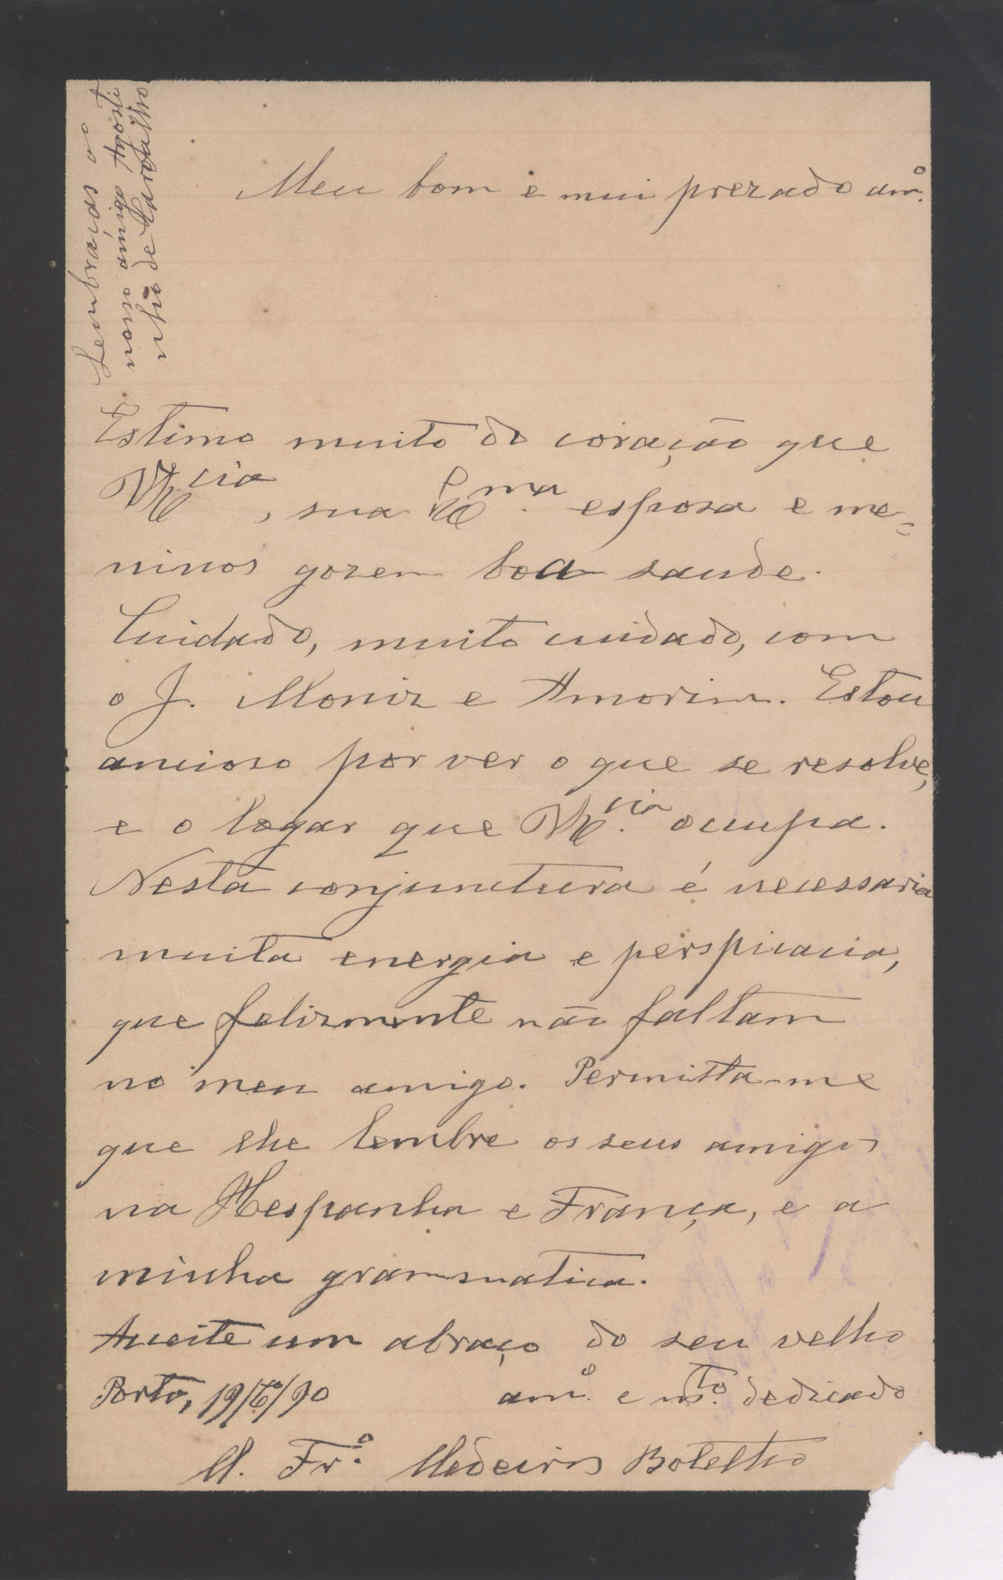 Lembraças ao
nosso amigo Agosti
nho de Carvalho
Meu bom e mui prezado amº.
Estimo muito do coração que
VExcia, sua Exma. esposa e me-
ninos gozem boa saude.
Cuidado, muito cuidado, com
o J. Moniz e Amorim. Estou
ancioso por ver o que se resolve,
e o logar que VExcia. occupa.
Nesta conjunctura é necessaria
muita energia e perspicacia,
que felizmente não faltam
no meu amigo. Permitta-me
que lhe lembre os seus amigos
na Hespanha e França, e a
minha grammatica.
Acceite um abraço do seu velho
Porto, 19/ /90 amº. e mto. dedicado
M. Frº. Medeiros Botelho